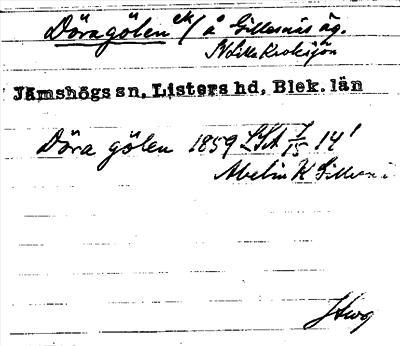 Döragölen ek/ å Gillesnäs äg.
N Lilla Kroksjön
Jämshögs sn, Listers hd, Blek. län
Döra gölen 1859 LSA 7/15 14'
Abelin K